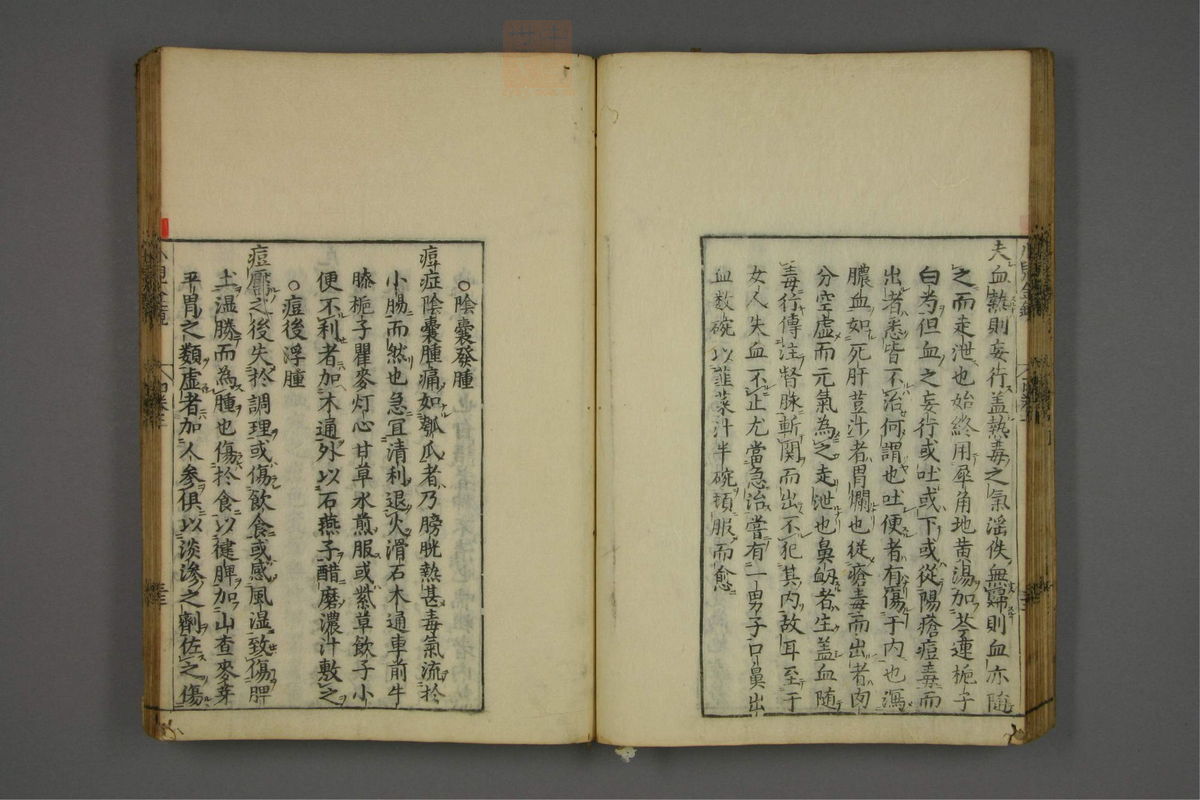 夫血熱則妄行盖熱毒之氣滛佚無歸則血亦隨
之而走泄也始終用犀角地黄湯加芩連梔子
白芍但血之妄行或吐或下或從陽瘡痘毒而
出者悉皆不治何謂也吐便者有傷于内也瀉
膿血如死肝荳汁者胃爛也從瘡毒而出者肉
分空虚而元氣為之走泄也鼻衂者生盖血随
毒行傳注督脉斬関而出不犯其内故耳至于
女人失血不止尤當急治嘗有一男子口鼻出
血数碗以韮菜汁半碗頓服而愈
○陰囊發腫
痘症陰囊腫痛如瓠瓜者乃膀胱熱甚毒氣流於
小腸而然也急宜清利退火滑石木通車前牛
膝梔子瞿麥灯心甘草水煎服或紫草飲子小
便不利者加木通外以石燕子醋磨濃汁敷之
○痘後浮腫
痘靨之後失於調理或傷飲食或感風湿致傷脾
土温勝而為腫也傷於食以健脾加山查麥芽
平胃之類虚者加人参俱以淡渗之劑佐之傷